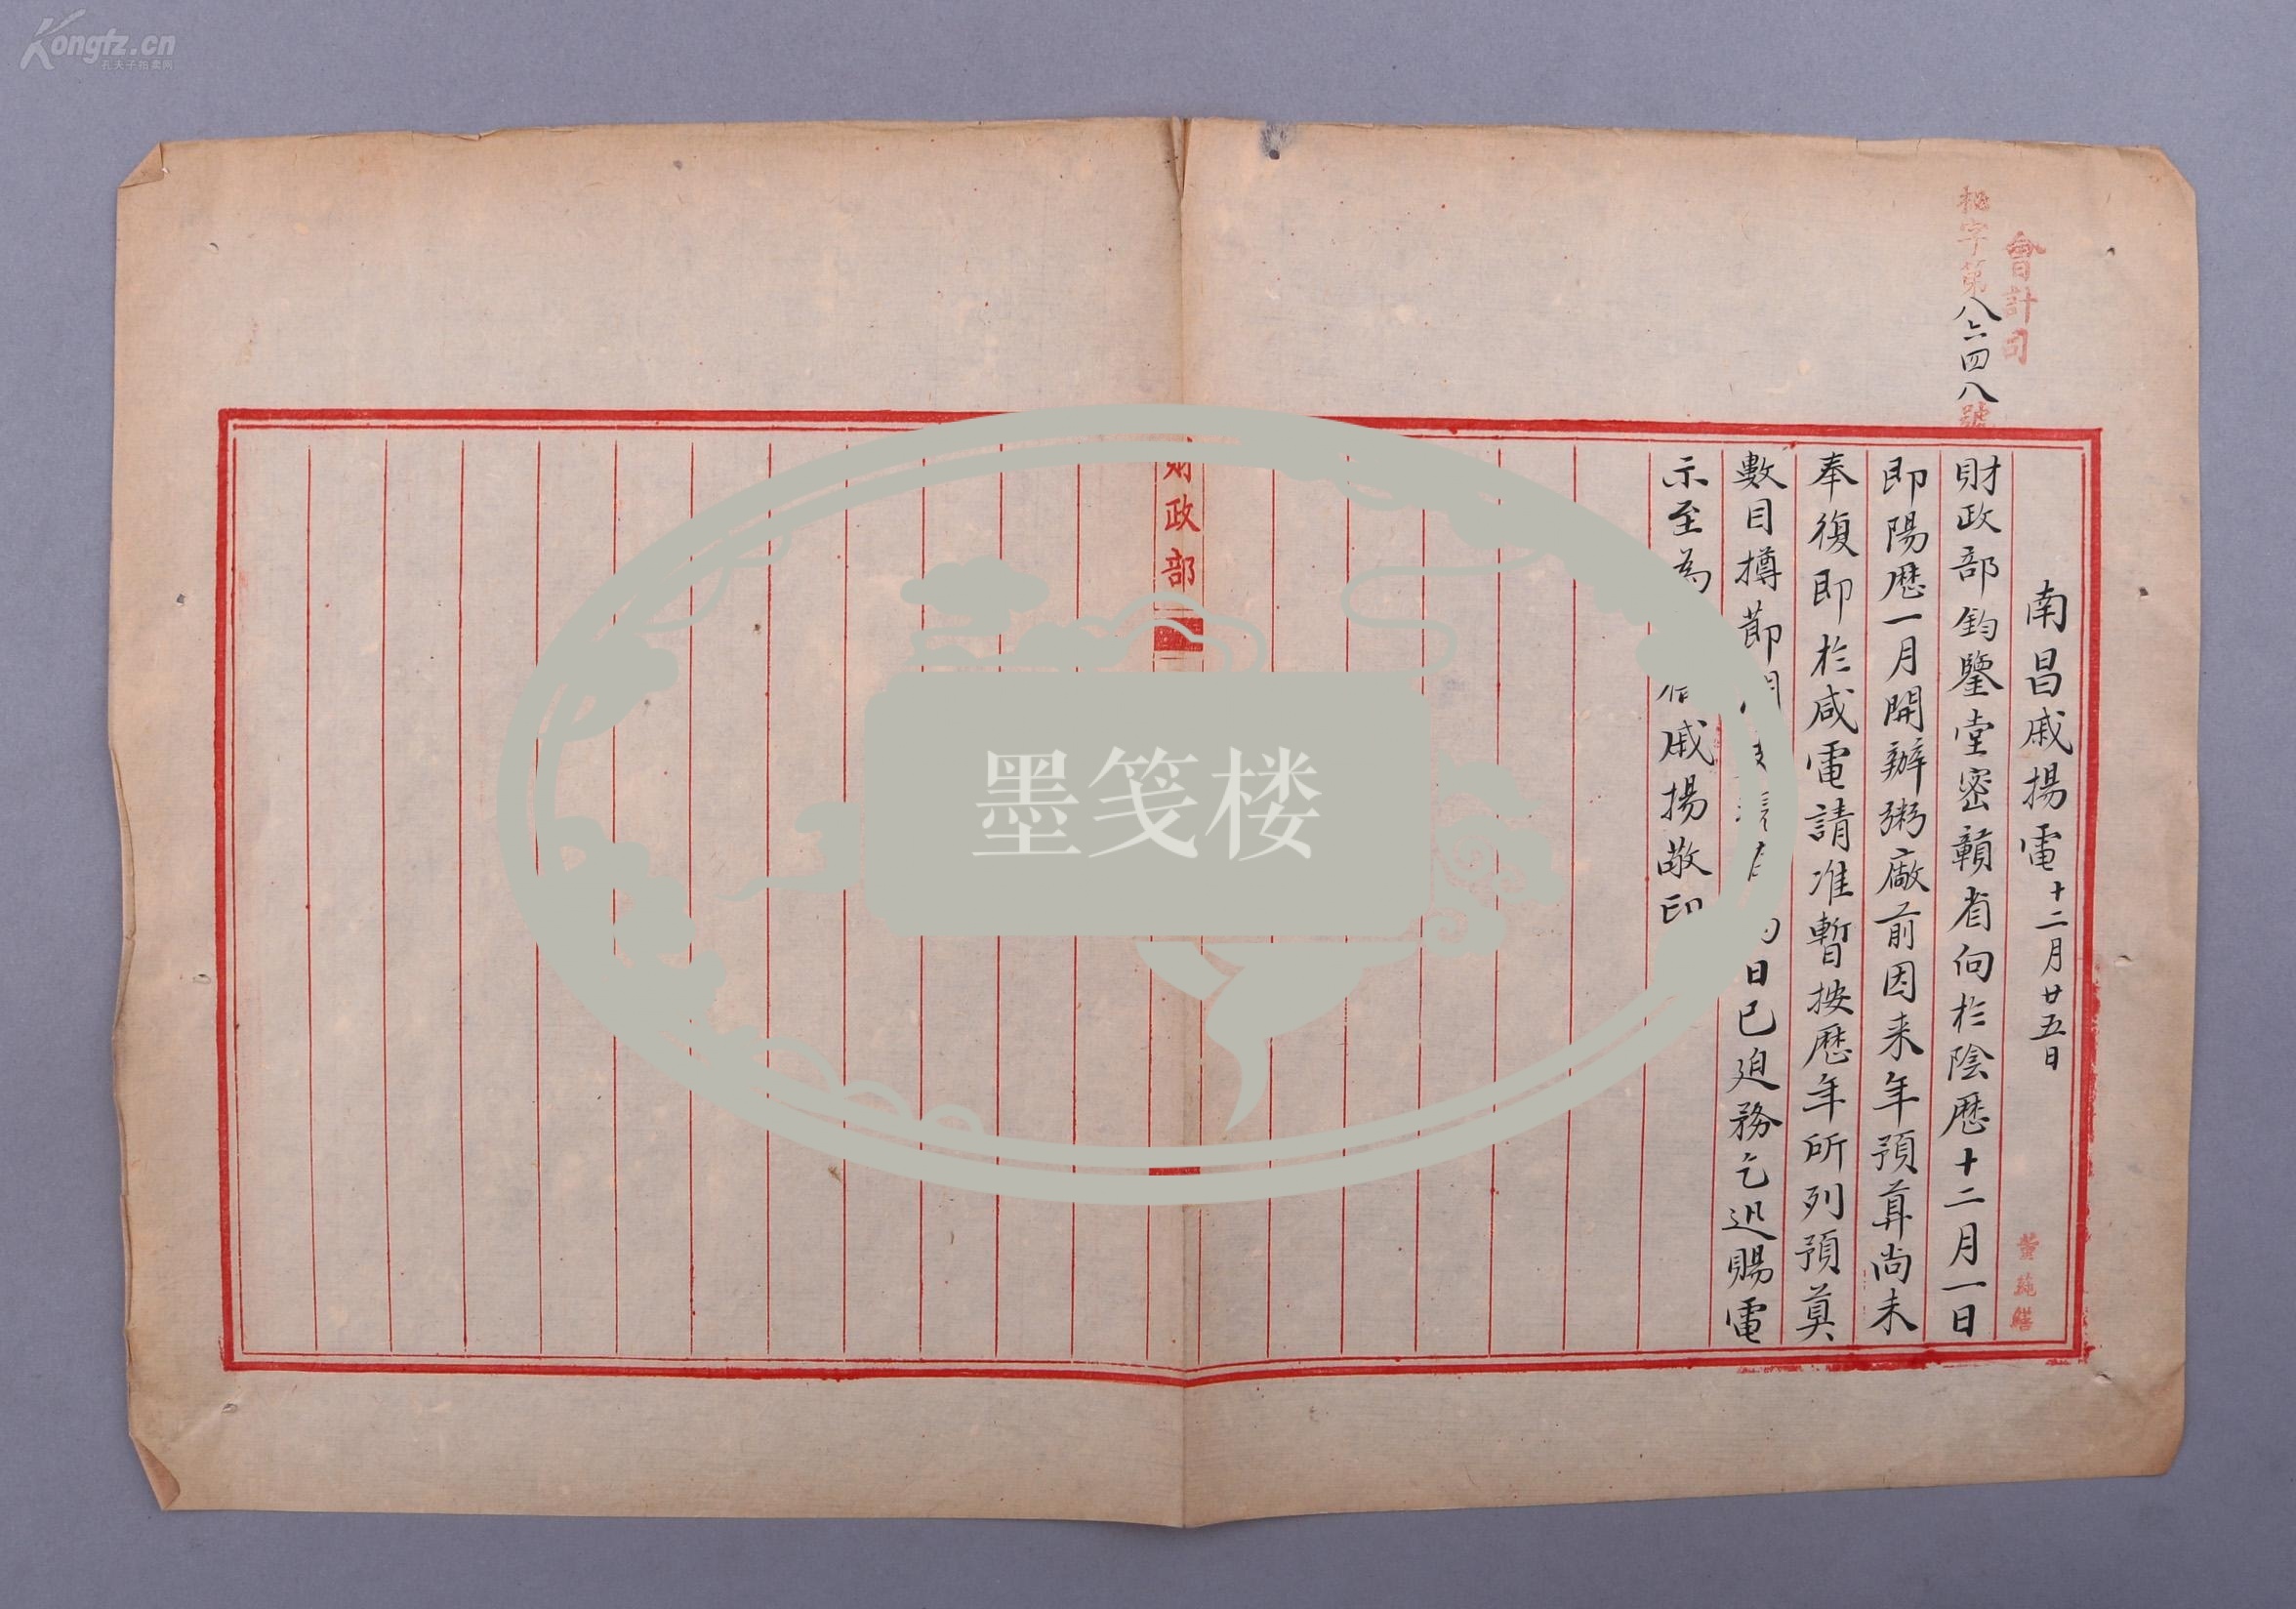 會計司
字第八六四八號
南昌戚揚電十二月廿五日
財政部鈞鑒堂密贛省向於陰歷十二月一日
即陽歷一月開辦粥廠前因来年預算尚未
奉復即於咸電請准暫按歷年所列預算
數目撙節開日已迫務乞迅賜電
示至為戚揚敬印
財政部
墨笺楼
Kongfz.cn
孔夫子拍卖网